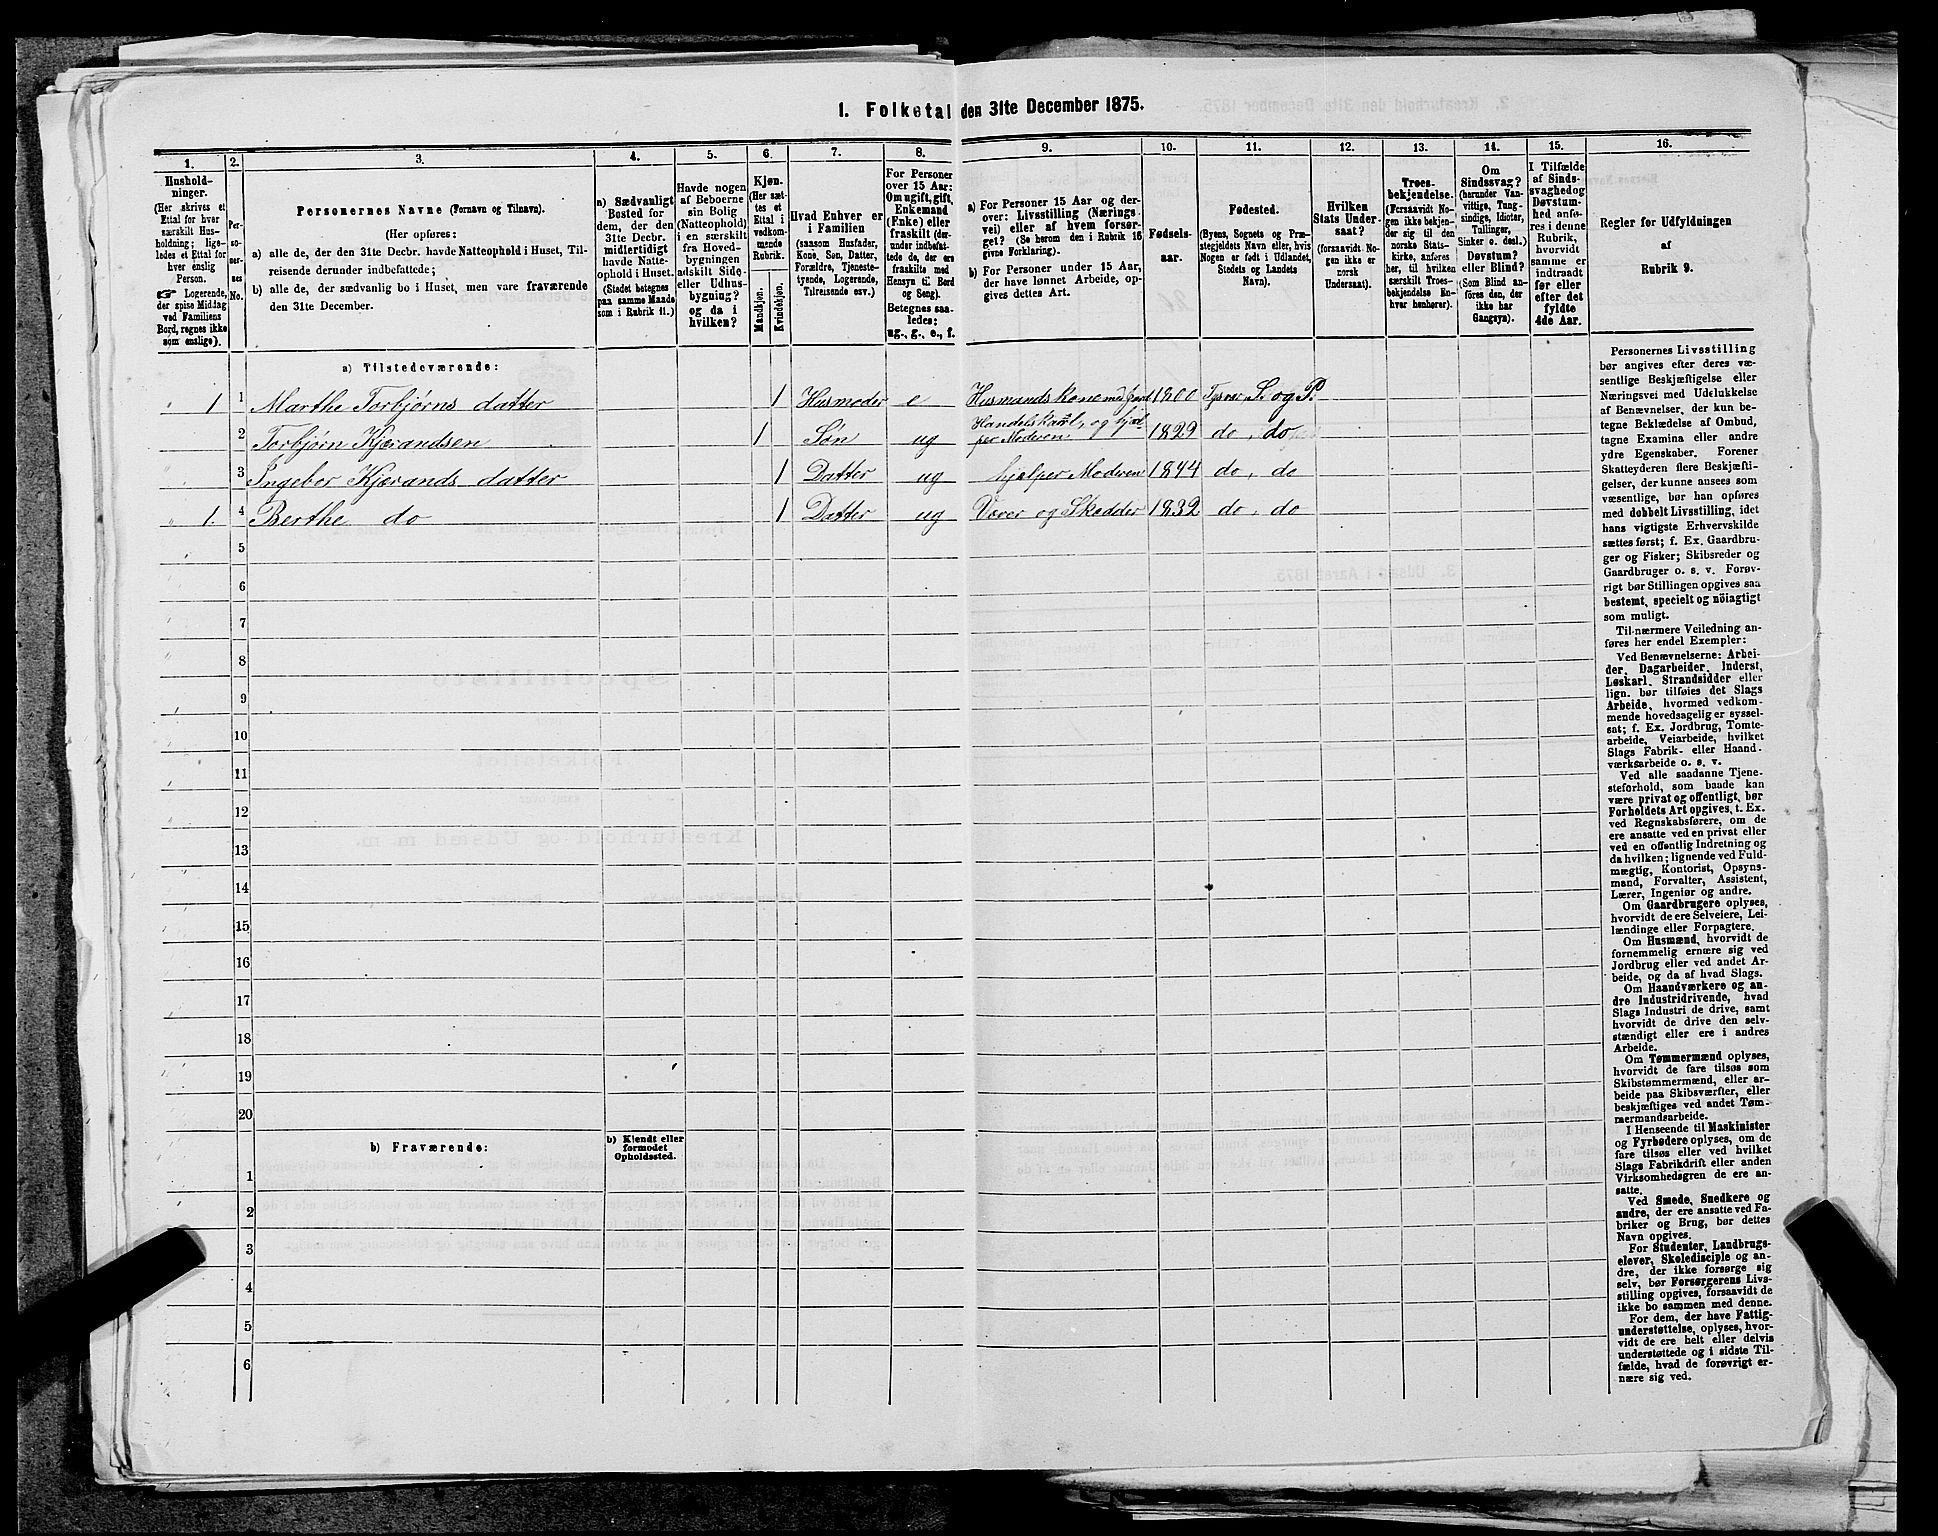 1. Folketal den 31te December 1875.
1.
2.
3.
4.
5.
6.
7.
8.
9.
10.
11.
12.
13.
14.
15.
16.
Hushold-
ninger.
(Her skrives et
Ettal for hver
særskilt Hus-
holdning; lige-
ledes et Ettal for
hver enslig
Person.
☞ Logerende,
der spise Middag
ved Familiens
Bord, regnes ikke
som enslige).
Per-
so-
ner-
nes
No.
Personernes Navne (Fornavn og Tilnavn).
(Her opføres:
a) alle de, der den 31te Decbr. havde Natteophold i Huset, Til-
reisende derunder indbefattede;
b) alle de, der sædvanlig bo i Huset, men vare fraværende
den 31te December.
a) Sædvanligt
Bosted for
dem, der den
31te Decbr.
midlertidigt
havde Natte-
ophold i Huset.
(Stedet betegnes
paa samme Maade
som i Rubrik 11.)
Havde nogen
af Beboerne
sin Bolig
(Natteophold)
i en særskilt
fra Hoved-
bygningen
adskilt Side-
eller Udhus-
bygning?
og da i
hvilken?
Kjøn.
(Her sæt-
tes et
Ettal i
vedkom-
mende
Rubrik.
Mandkjøn.
Kvindekjøn.
Hvad Enhver er
i Familien
(saasom Husfader,
Kone, Søn, Datter,
Forældre, Tjeneste-
tyende, Logerende,
Tilreisende osv.)
For Personer
over 15 Aar:
Om ugift, gift,
Enkemand
(Enke) eller
fraskilt (der-
under indbefat-
tede de, der ere
fraskilte med
Hensyn til Bord
og Seng).
Betegnes saa-
ledes:
ug., g., e., f.
a) For Personer 15 Aar og der-
over: Livsstilling (Nærings-
vei) eller af hvem forsør-
get? (Se herom den i Rubrik 16
givne Forklaring).
b) For Personer under 15 Aar,
der have lønnet Arbeide, op-
gives dettes Art.
Fødsels-
aar.
Fødested.
(Byens, Sognets og Præ-
stegjeldets Navn eller, hvis
Nogen er født i Udlandet,
Stedets og Landets
Navn).
Hvilken
Stats Under-
saat?
(forsaavidt No-
gen ikke er
norsk
Undersaat).
Troes-
bekjendelse.
(Forsaavidt No-
gen ikke bekjen-
der sig til den
norske Stats-
kirke, anføres
her, til hvilken
særskilt Troes-
bekjendelse En-
hver henhører).
Om
Sindssvag?
(herunder Van-
vittige, Tung-
sindige, Idioter,
Tullinger,
Sinker o. desl.)
Døvstum?
eller Blind?
(Som Blind an-
føres den, der
ikke har
Gangsyn).
I Tilfælde
af Sinds-
svaghed og
Døvstum-
hed anfø-
res i denne
Rubrik,
hvorvidt
samme er
indtraadt
før eller
efter det
fyldte
4de Aar.
Regler for Udfyldningen
af
Rubrik 9.
a) Tilstedeværende:
1 1 Marthe Torbjørns datter 1 Husmoder e Husmandskone med jord 1800 Tysvær S. og P.
2 Torbjørn Kjærandsen 1 Søn ug Handelskarl, og hjæl-
per Moderen 1829 do, do
3 Ingebor Kjærands datter 1 Datter ug hjælper Moderen 1844 do, do
1. 4 Berthe do 1 Datter ug Væver og Skrædder 1832 do, do
5
6
7
8
9
10
11
12
13
14
15
16
17
18
19
20
b) Fraværende:
b) Kjendt eller
formodet
Opholdssted.
1
2
3
4
5
6
Personernes Livsstilling
bør angives efter deres væ-
sentlige Beskjæftigelse eller
Næringsvei med Udelukkelse
af Benævnelser, der kun be-
tegne Beklædelse af Ombud,
tagne Examina eller andre
ydre Egenskaber. Forener
Skatteyderen flere Beskjæfti-
gelser, der kunne ansees som
væsentlige, bør han opføres
med dobbelt Livsstilling, idet
hans vigtigste Erhvervskilde
sættes først; f. Ex. Gaardbru-
ger og Fisker; Skibsreder og
Gaardbruger o. s. v. Forøv-
rigt bør Stillingen opgives saa
bestemt, specielt og nøiagtigt
som muligt.
Til nærmere Veiledning an-
føres her endel Exempler:
Ved Benævnelserne: Arbei-
der, Dagarbeider, Inderst,
Løskarl, Strandsidder eller
lign. bør tilføies det Slags
Arbeide, hvormed vedkom-
mende hovedsagelig er syssel-
sat; f. Ex. Jordbrug, Tomte-
arbeide, Veiarbeide, hvilket
Slags Fabrik- eller Haand-
værksarbeide o. s. v.
Ved alle saadanne Tjene-
steforhold, som baade kan
være privat og offentligt, bør
Forholdets Art opgives, t. Ex.
ved Regnskabsførere, om de
ere ansatte ved en privat eller
ved en offentlig Indretning og
da hvilken; lignende ved Fuld-
mægtig, Kontorist, Opsyns-
mand, Forvalter, Assistent,
Lærer, Ingeniør og andre.
Om Gaardbrugere oplyses,
hvorvidt de ere Selveiere, Lei-
lændinge eller Forpagtere.
Om Husmænd, hvorvidt de
fornemmelig ernære sig ved
Jordbrug eller ved andet Ar-
beide, og da af hvad Slags.
Om Haandværkere og an-
dre Industridrivende, hvad
Slags Industri de drive, samt
hvorvidt de drive den selv-
stændigt eller ere i andres
Arbeide.
Om Tømmermænd oplyses,
hvorvidt de fare tilsøs som
Skibstømmermænd, eller ar-
beide paa Skibsværfter, eller
beskjæftiges ved andet Tøm-
mermandsarbeide.
I Henseende til Maskinister
og Fyrbødere oplyses, om de
fare tilsøs eller ved hvilket
Slags Fabrikdrift eller anden
Virksomhedsgren de ere an-
satte.
Ved Smede, Snedkere og
andre, der ere ansatte ved Fa-
briker og Brug, bør dettes
Navn opgives.
For Studenter, Landbrugs-
elever, Skoledisciple og an-
dre, der ikke forsørge sig
selv, bør Forsørgerens Livs-
stilling opgives, forsaavidt de
ikke bo sammen med denne.
For dem, der have Fattig-
understøttelse, oplyses, hvor-
vidt de ere helt eller delvis
understøttede og i sidste Til-
fælde, hvad de forøvrigt er-
nære sig ved.